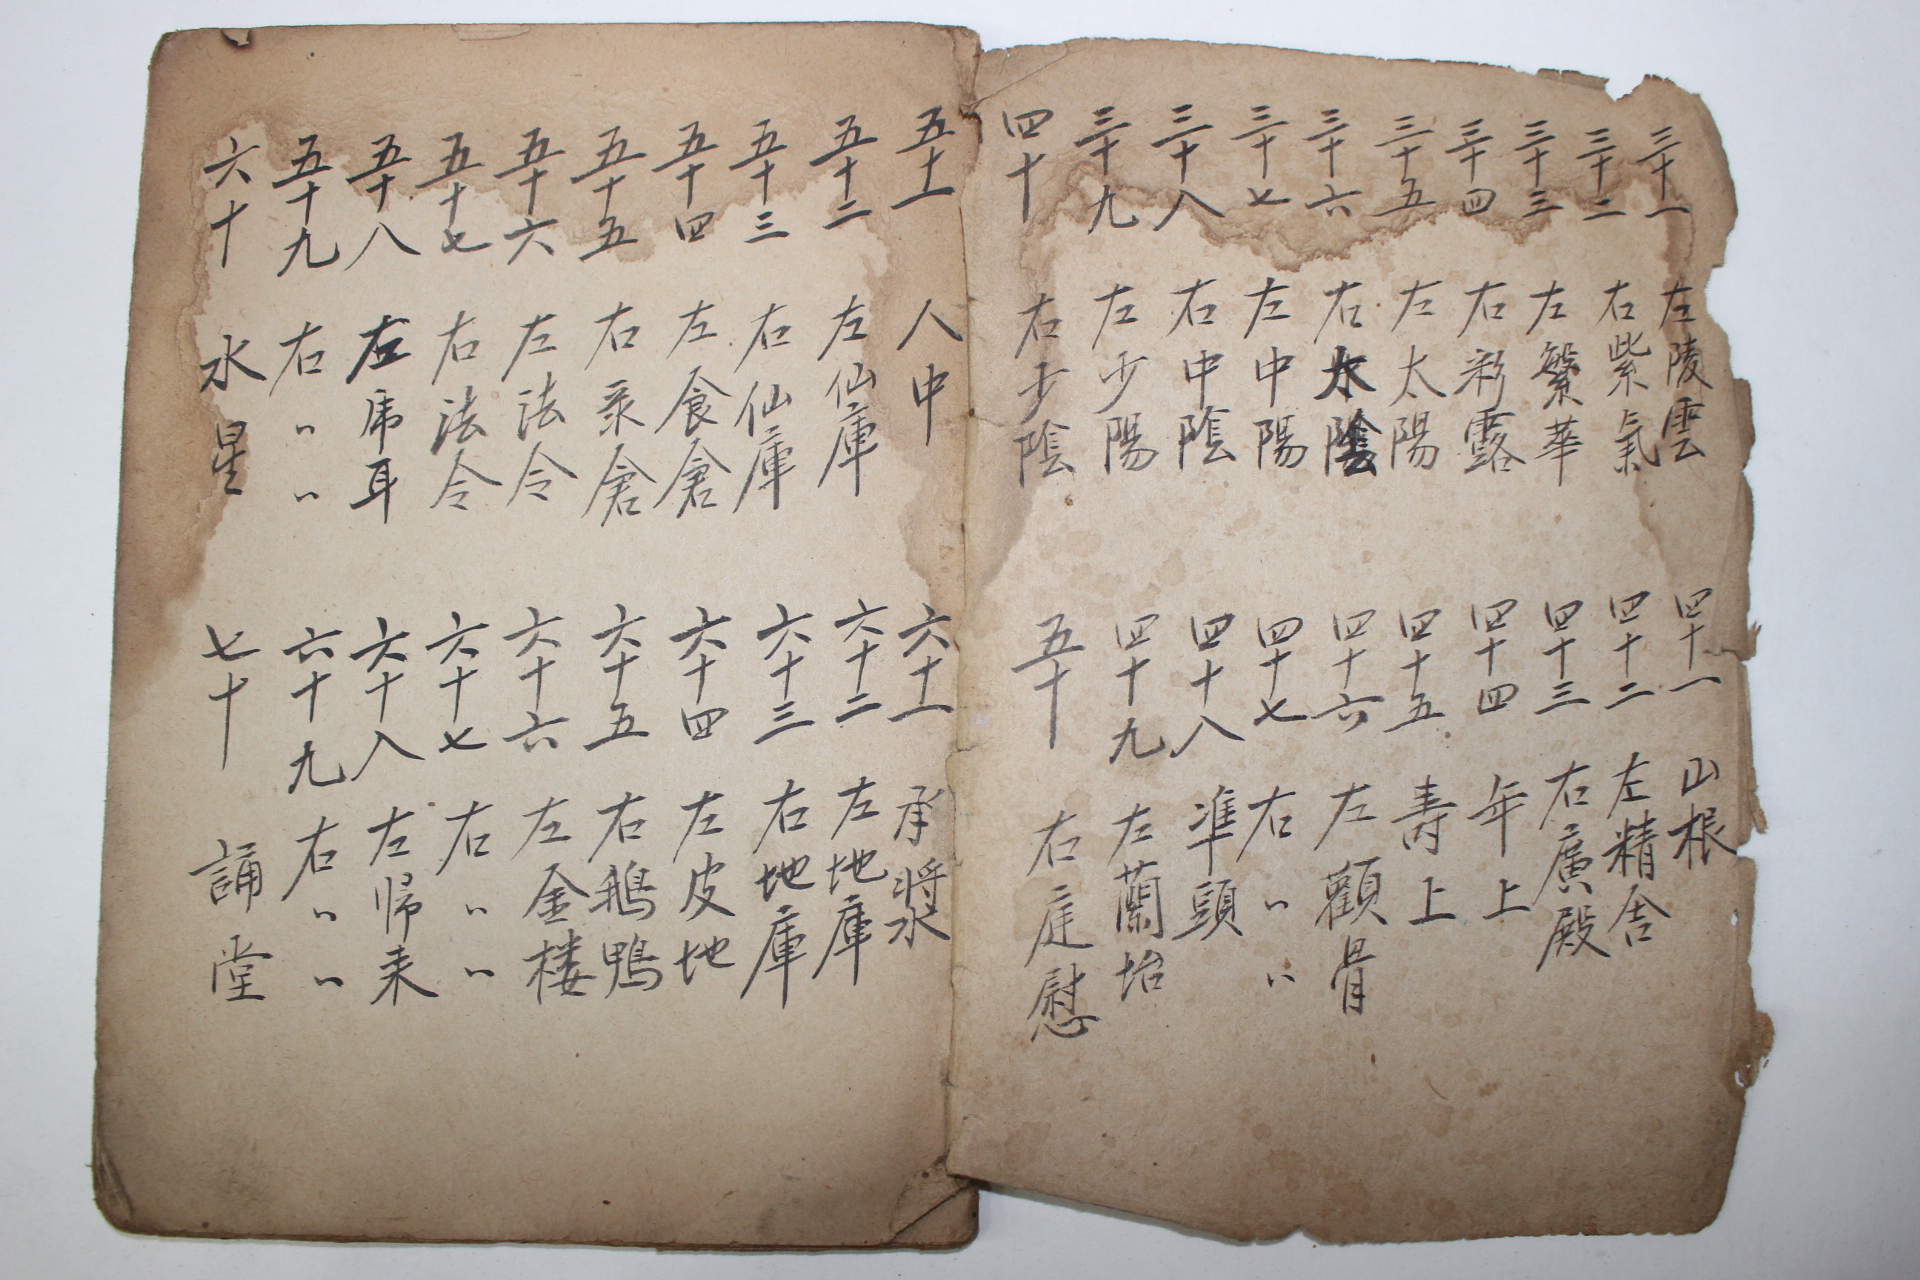 三十一 左陵雲
三十二 右紫氣
三十三 左繁華
三十四 右彩露
三十五 左太陽
三十六 右太陰
三十七 左中陽
三十八 右中陰
三十九 左少陽
四十 右少陰
四十一 山根
四十二 左精舍
四十三 右廣殿
四十四 年上
四十五 壽上
四十六 左顴骨
四十七 右〃〃
四十八 準頭
四十九 左蘭坮
五十 右庭慰
五十一 人中
五十二 左仙庫
五十三 右仙庫
五十四 左食倉
五十五 右彔倉
五十六 左法令
五十七 右法令
五十八 左乕耳
五十九 右〃〃
六十 水星
六十一 承漿
六十二 左地庫
六十三 右地庫
六十四 左皮地
六十五 右鵝鴨
六十六 左金楼
六十七 右〃〃
六十八 左帰来
六十九 右〃〃
七十 誦堂